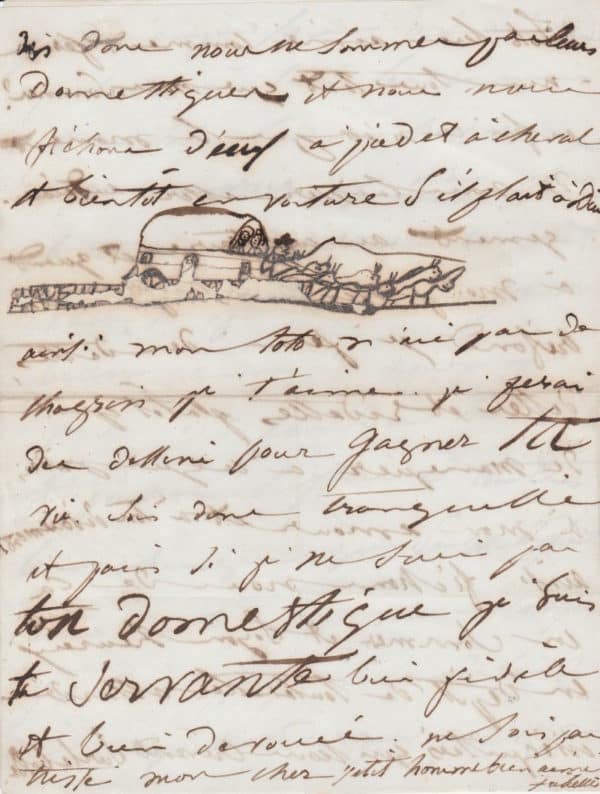 donc nous ne sommes pas leurs
domestiques et nous nous
fichons d'eux à pied et à cheval
et bientôt en voiture s'il plait à Dieu
ainsi mon toto n'aie pas de
chagrin je t'aime. je ferai
des dessins pour gagner ta
vie. sois donc tranquille
et puis si je ne suis pas
ton domestique je suis
ta servante bien fidèle
et bien dévouée. ne sois pas
triste mon cher petit homme bien aimé